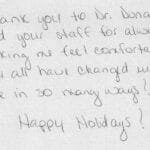 hank you to Dr. Dona
d your staff for alwa
king me feel comforta
all have changed
e in so many ways!
Happy Holidays!